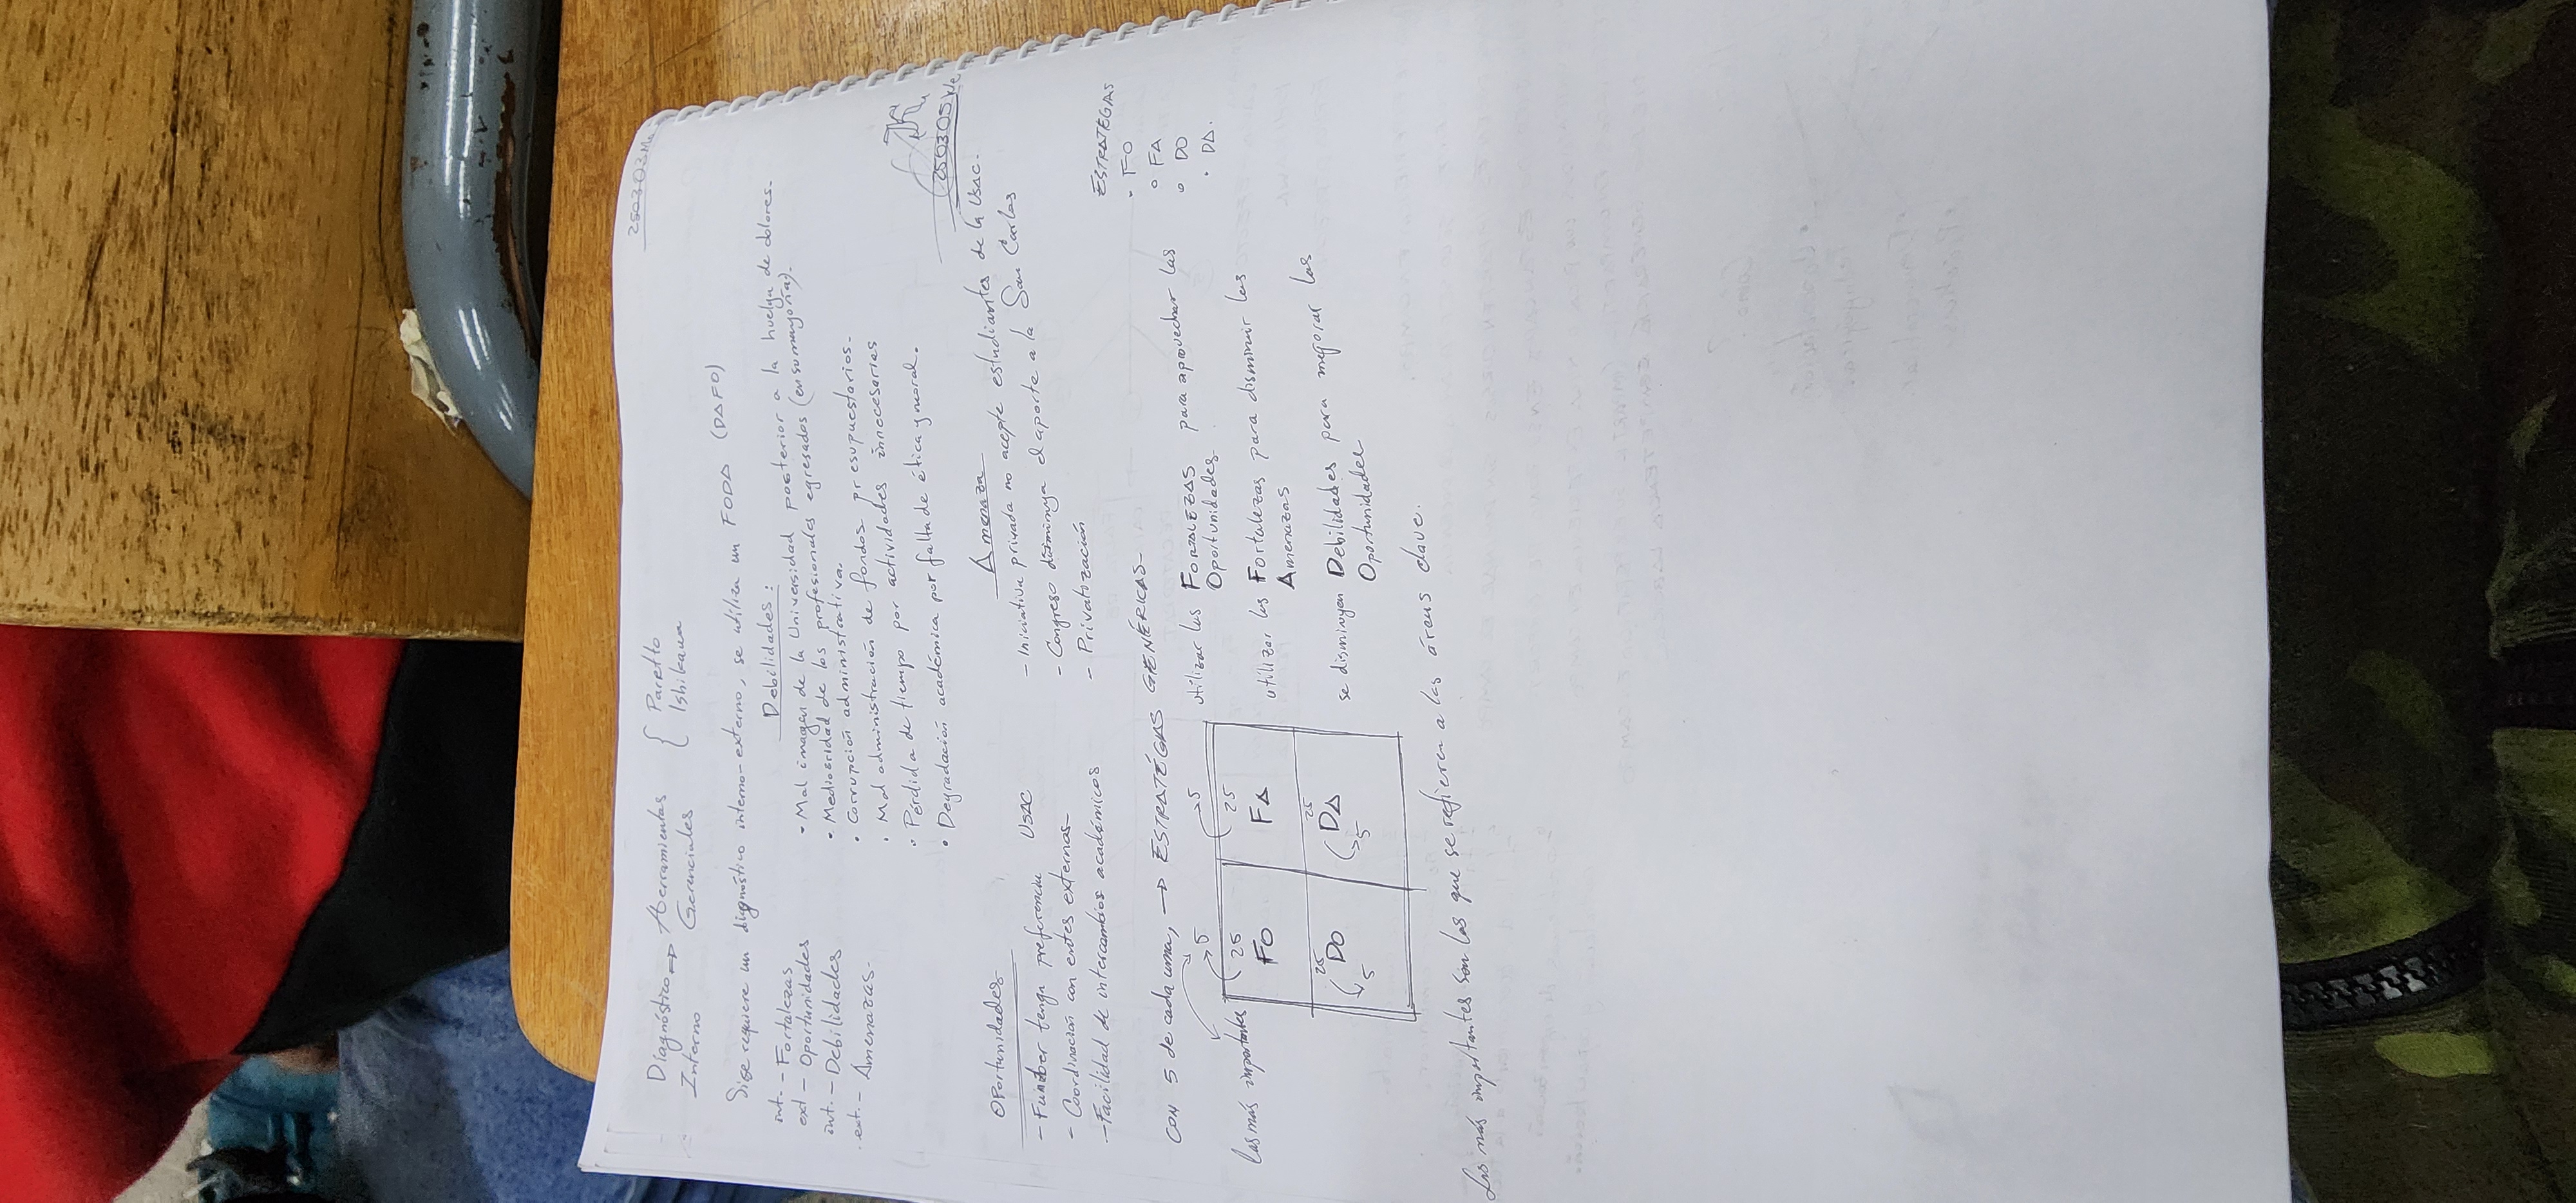 250303Mo
Diagnóstico ⇒ Herramientas { Paretto
Interno Gerenciales Ishikawa
Si se requiere un diagnóstico interno-externo, se utiliza un FODA (DAFO)
int. - Fortalezas
ext - Oportunidades
int. - Debilidades
ext. - Amenazas.
Debilidades:
• Mal imagen de la Universidad posterior a la huelga de dolores.
• Mediocridad de los profesionales egresados (en su mayoría).
• Corrupción administrativa.
• Mal administración de fondos presupuestarios.
• Pérdida de tiempo por actividades innecesarias
• Degradación académica por falta de ética y moral.
250305We
Oportunidades
- tenga preferencia USAC
- Coordinación con entes externos
- Facilidad de intercambios académicos
Amenaza
- Iniciativa privada no acepte estudiantes de la USAC.
- Congreso disminuya el aporte a la San Carlos
- Privatización
CON 5 de cada una, → ESTRATÉGAS GENÉRICAS
ESTRATEGAS
• FO
• FA
• DO
• DA.
las más importantes
5 5
25 25
FO FA
25 25
DO DA
5 5
utilizar las FORTALEZAS para aprovechar las
Oportunidades
utilizar las Fortalezas para disminuir las
Amenazas
se disminuyen Debilidades para mejorar las
Oportunidades
Las más importantes son las que se refieren a las áreas clave.